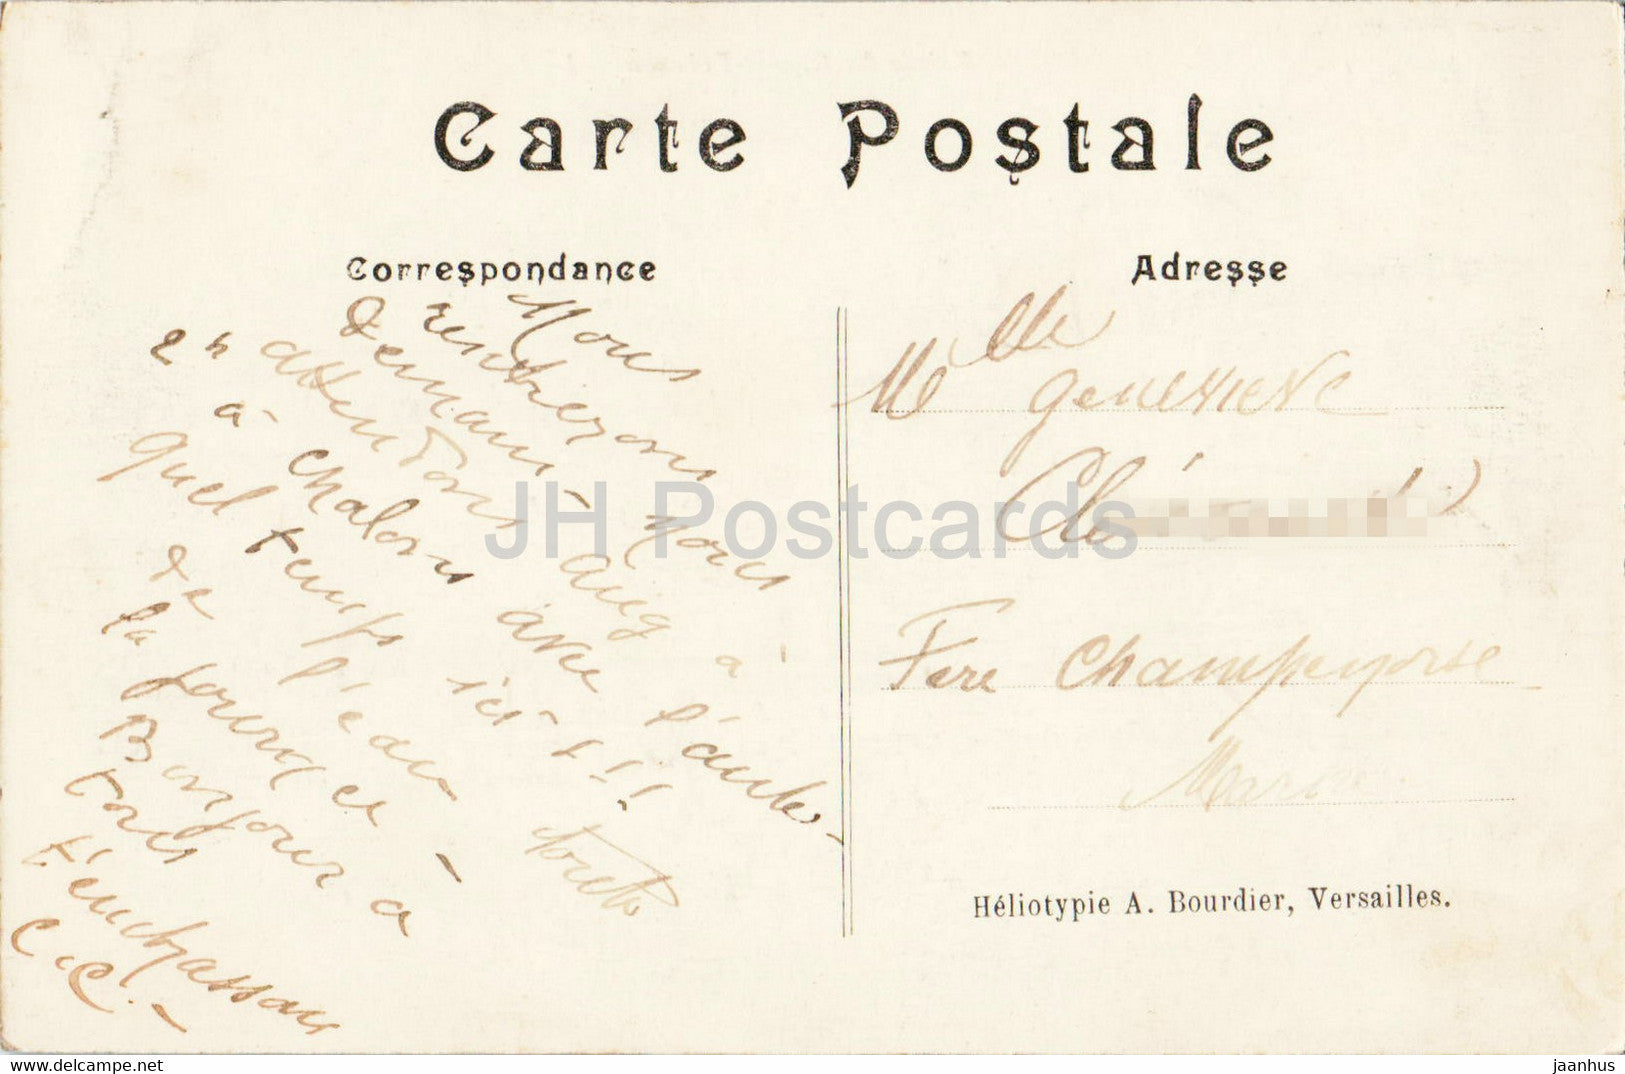 Carte Postale
Correspondance
Adresse
Nous
rentrerons
demain - Nous
attendons
à l'aube
à chalons avec
quel temps ici - !!!
de l'eau toute
la journée -
Bonjour à
tous
t'embrassons
C. C. -
Mlle
Genevieve
Clé
Fère Champenoise
Marne
Héliotypie A. Bourdier, Versailles.
JH Postcards
hip-hop.delcampe.net
jaanhus